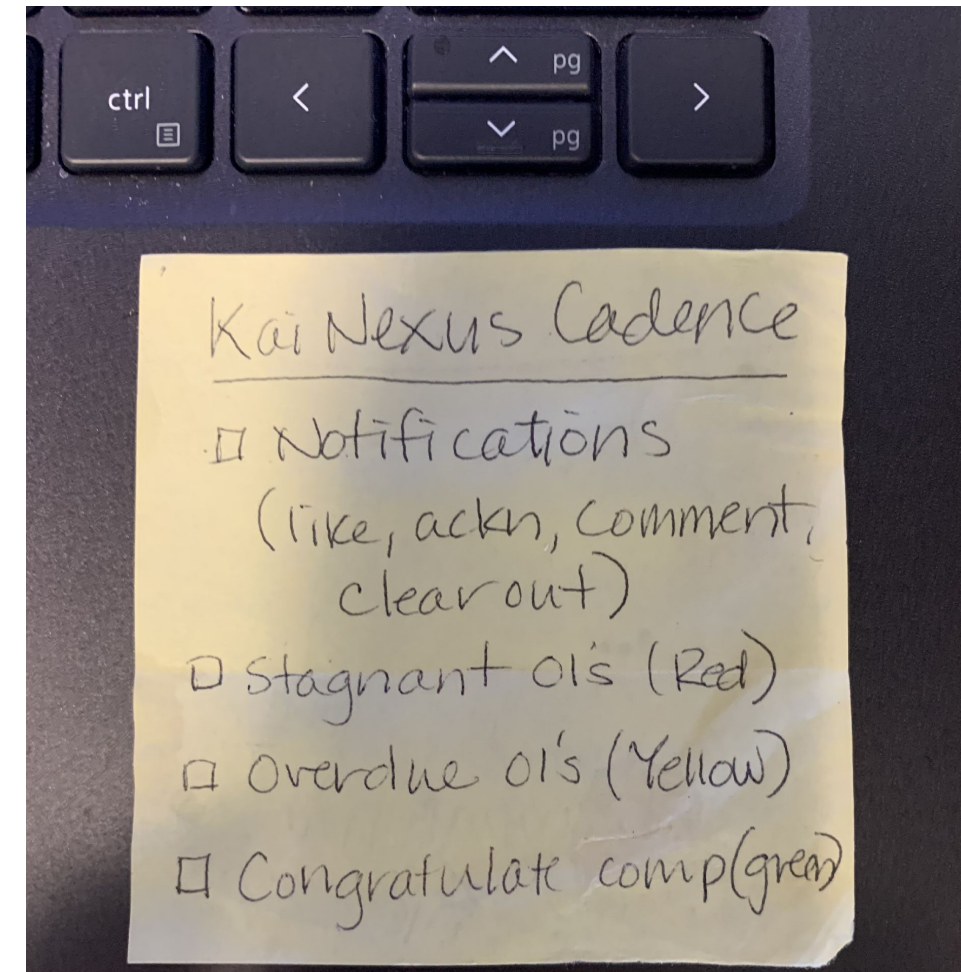 ctrl
pg
pg
Kai Nexus Cadence
Notifications
(like, ackn, comment,
clear out)
Stagnant OI's (Red)
Overdue OI's (Yellow)
Congratulate comp(green)